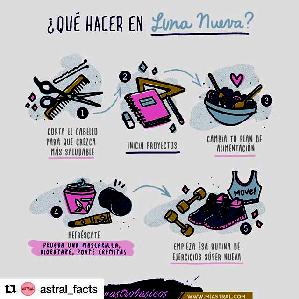 ¿QUÉ HACER EN Luna Nueva?
1
CORTA EL CABELLO
PARA QUE CREZCA
MÁS SALUDABLE
2
INICIA PROYECTOS
3
CAMBIA TU PLAN DE
ALIMENTACIÓN
4
REFRÉSCATE
PRUEBA UNA MASCARILLA,
HIDRÁTATE, PONTE CREMITAS
MOVE!
5
EMPIEZA ESA RUTINA DE
EJERCICIOS SÚPER NUEVA
astral_facts
#astrobásicos
WWW.MIASTRAL.COM